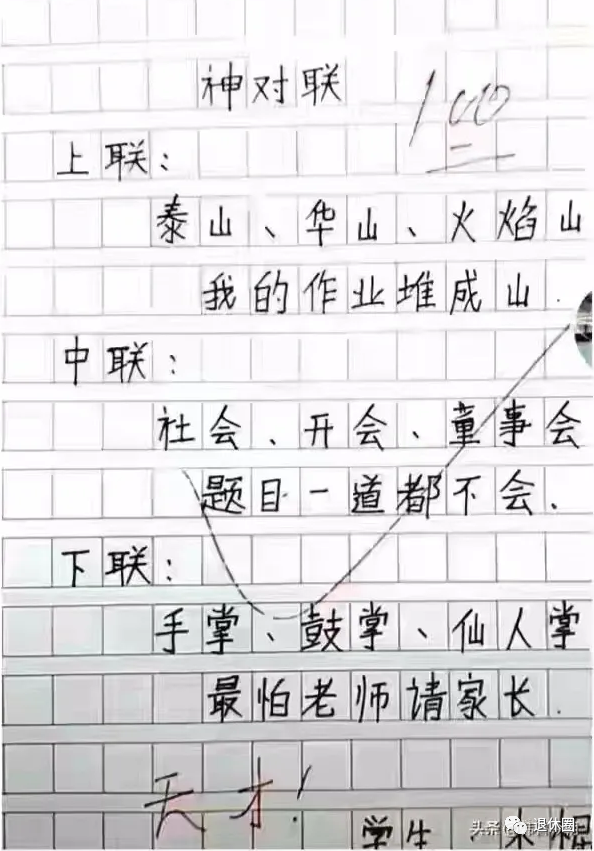 神对联
100
上联：
泰山、华山、火焰山
我的作业堆成山.
中联：
社会、开会、童事会
题目一道都不会.
下联：
手掌、鼓掌、仙人掌
最怕老师请家长.
天才！
学生
头条
退休圈